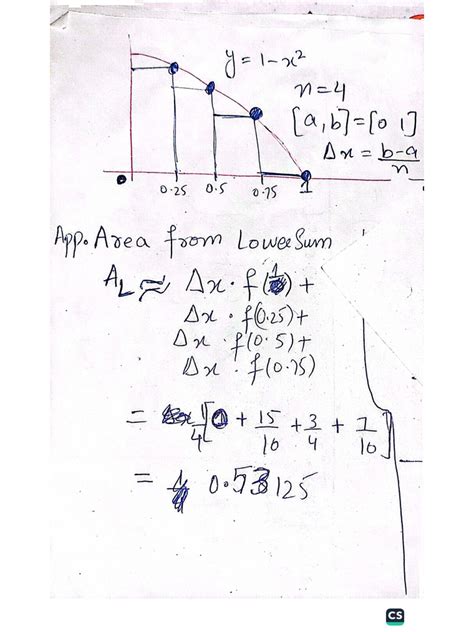 y = 1 - x²
n = 4
[a, b] = [0 1]
Δx = b-a/n
0 0.25 0.5 0.75 1
App. Area from Lower Sum
A_L ≈ Δx · f(1) +
Δx · f(0.25) +
Δx · f(0.5) +
Δx · f(0.75)
= 1/4 [0 + 15/10 + 3/4 + 7/10]
= 0.53125
CS